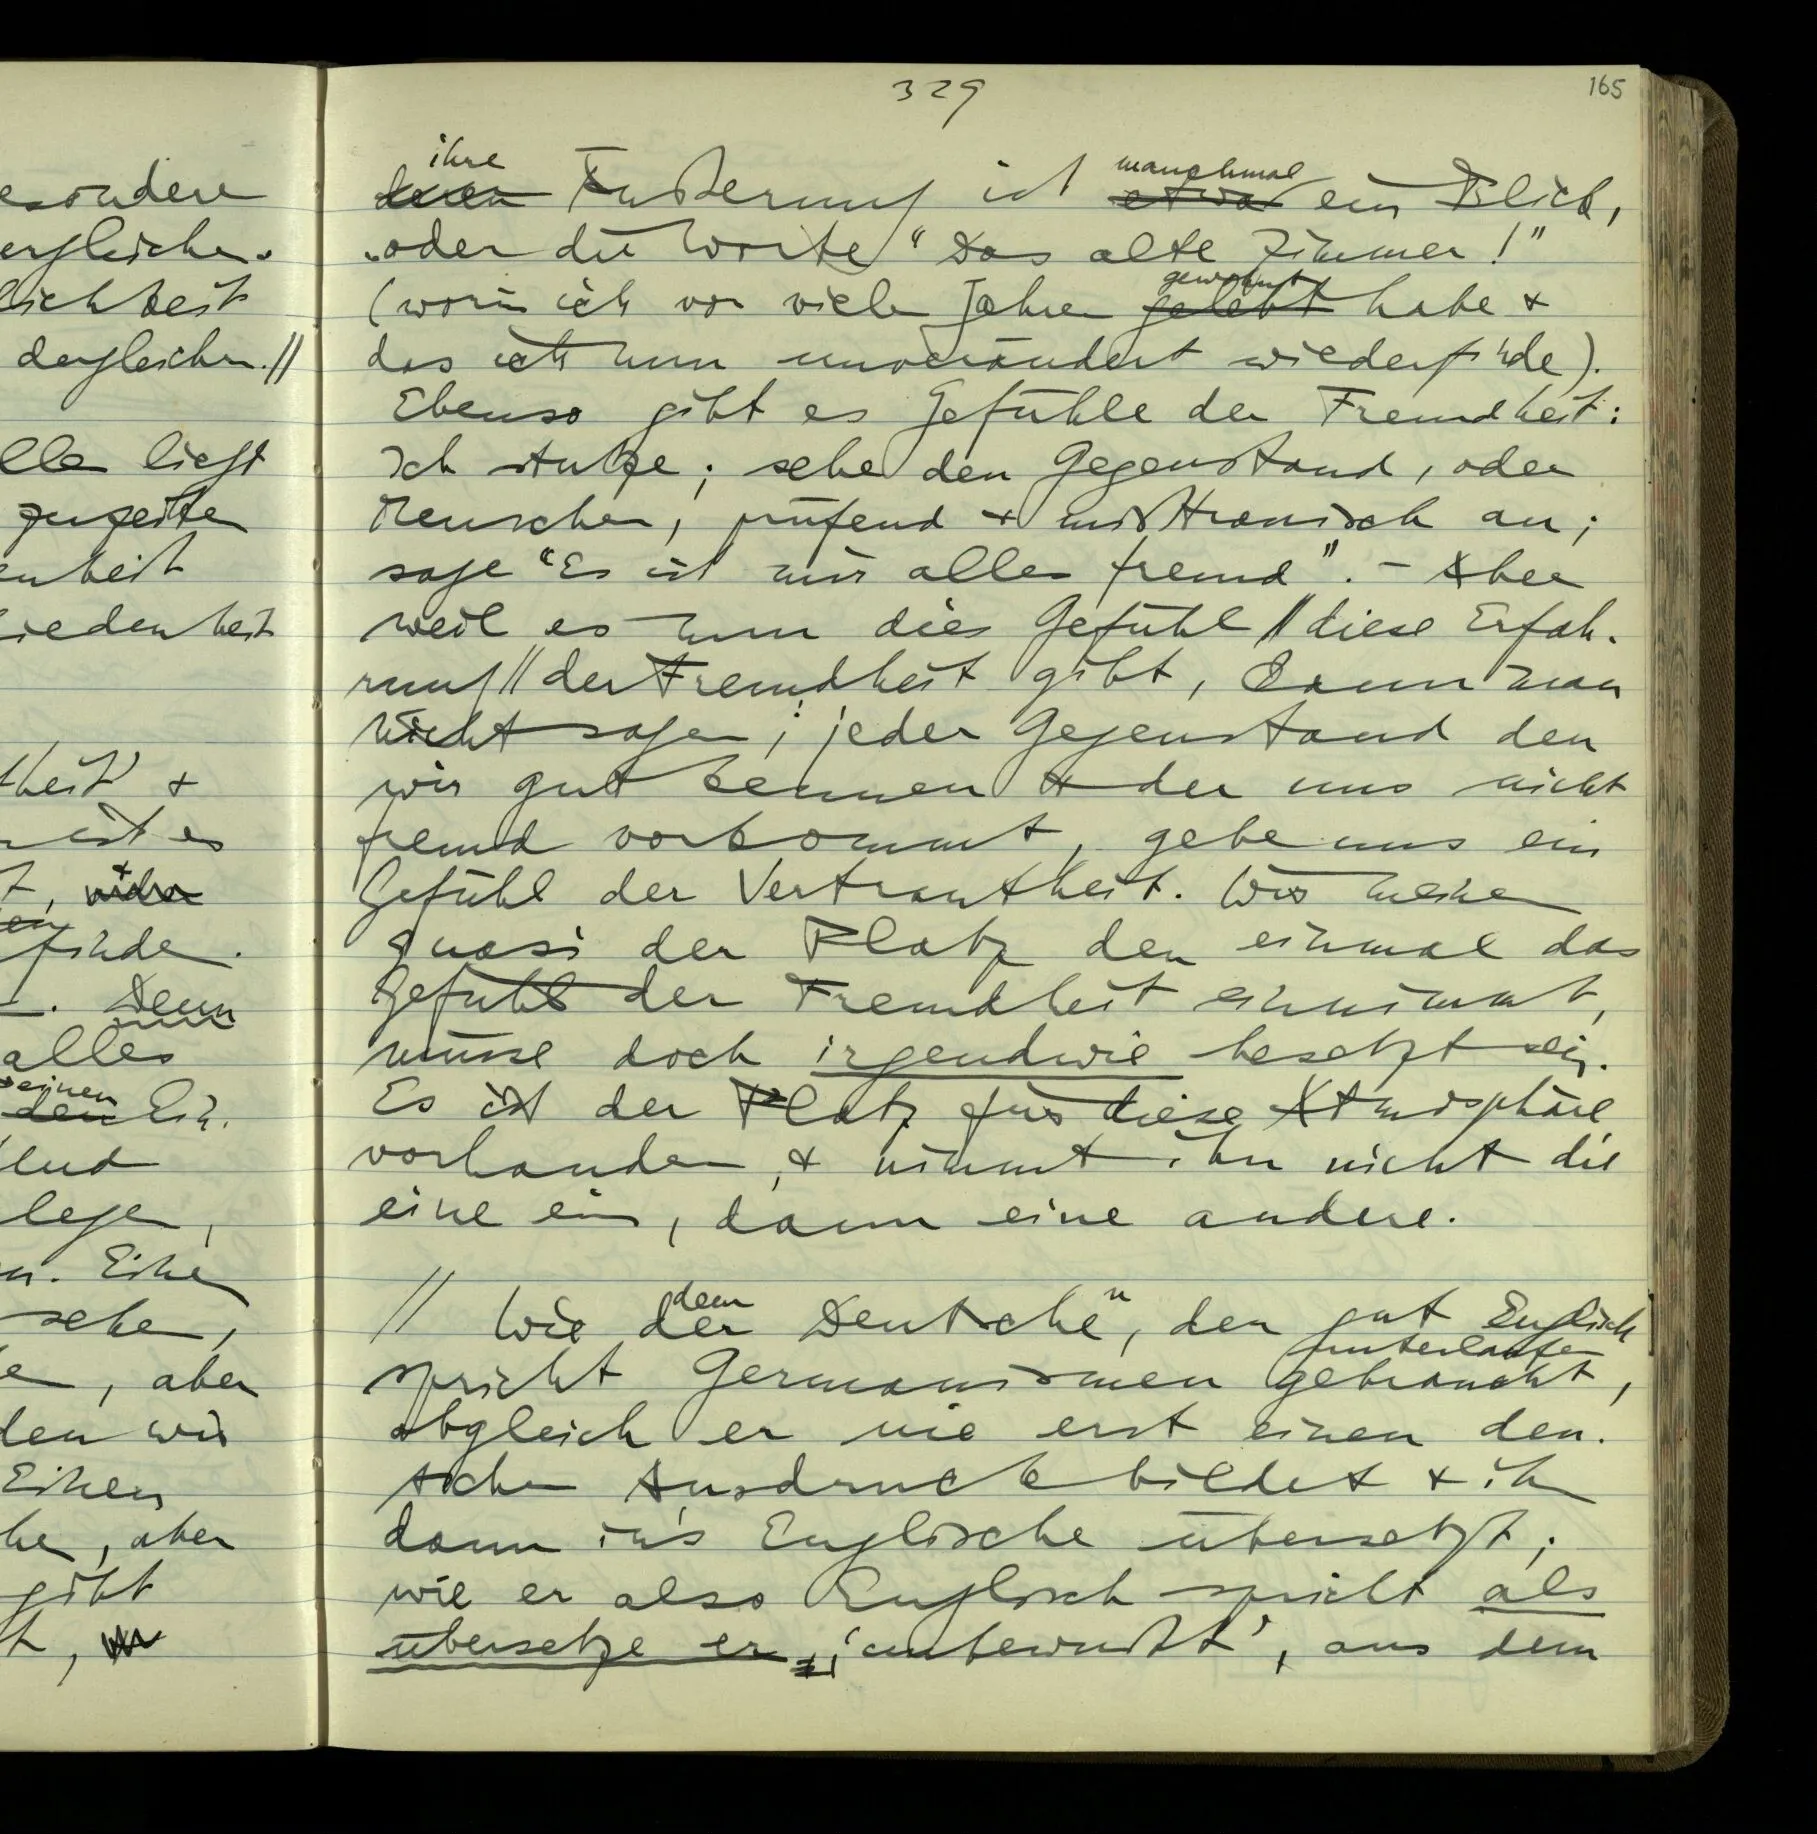 esondere
ergleichen.
lichkeit
dergleichen.//
lle liegt
enheit
iedenheit
heit' +
ist es
t,
finde.
. Denn
alles
seinen
den Ein-
lend
legen,
n. Eine
sehe,
e, aber
den wir
Einen
he, aber
gibt
t,
329
165
ihre manchmal
deren Äußerung ist etwa ein Blick,
oder die Worte "Das alte Zimmer!"
gewohnt
(worin ich vor vielen Jahren gelebt habe +
das ich nun unverändert wiederfinde).
Ebenso gibt es Gefühle der Fremdheit:
Ich stutze; sehe den Gegenstand, oder
Menschen, prüfend + mißtrauisch an;
sage "Es ist mir alles fremd". – Aber
weil es nun dies Gefühl // diese Erfah-
rung // der Fremdheit gibt, kann man
nicht sagen; jeder Gegenstand den
wir gut kennen + der uns nicht
fremd vorkommt, gebe uns ein
Gefühl der Vertrautheit. Wir meinen
quasi der Platz den einmal das
Gefühl der Fremdheit einnimmt,
müsse doch irgendwie besetzt sein.
Es ist der Platz für diese Atmosphäre
vorhanden, + nimmt ihn nicht die
eine ein, dann eine andere.
dem n
// Wie der Deutsche, der gut Englisch
unterlaufen
spricht Germanismen gebraucht,
obgleich er nie erst einen deu-
tschen Ausdruck bildet + ihn
dann in's Englische übersetzt;
wie er also Englisch spricht als
übersetze er, 'unbewußt', aus dem